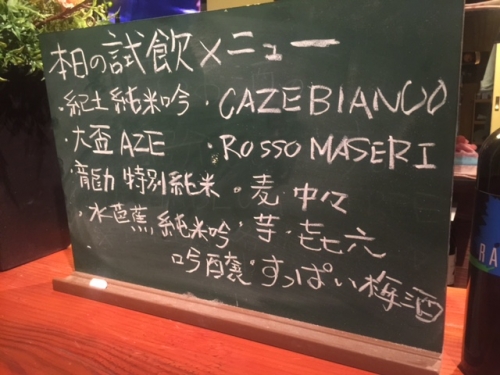 本日の試飲メニュー
・紀土 純米吟 ・CAZEBIANCO
・大盃 AZE ・ROSSO MASERI
・龍力 特別純米 ・麦・中々
・水芭蕉 純米吟 ・芋・七七六
吟醸 ・すっぱい梅酒
RA